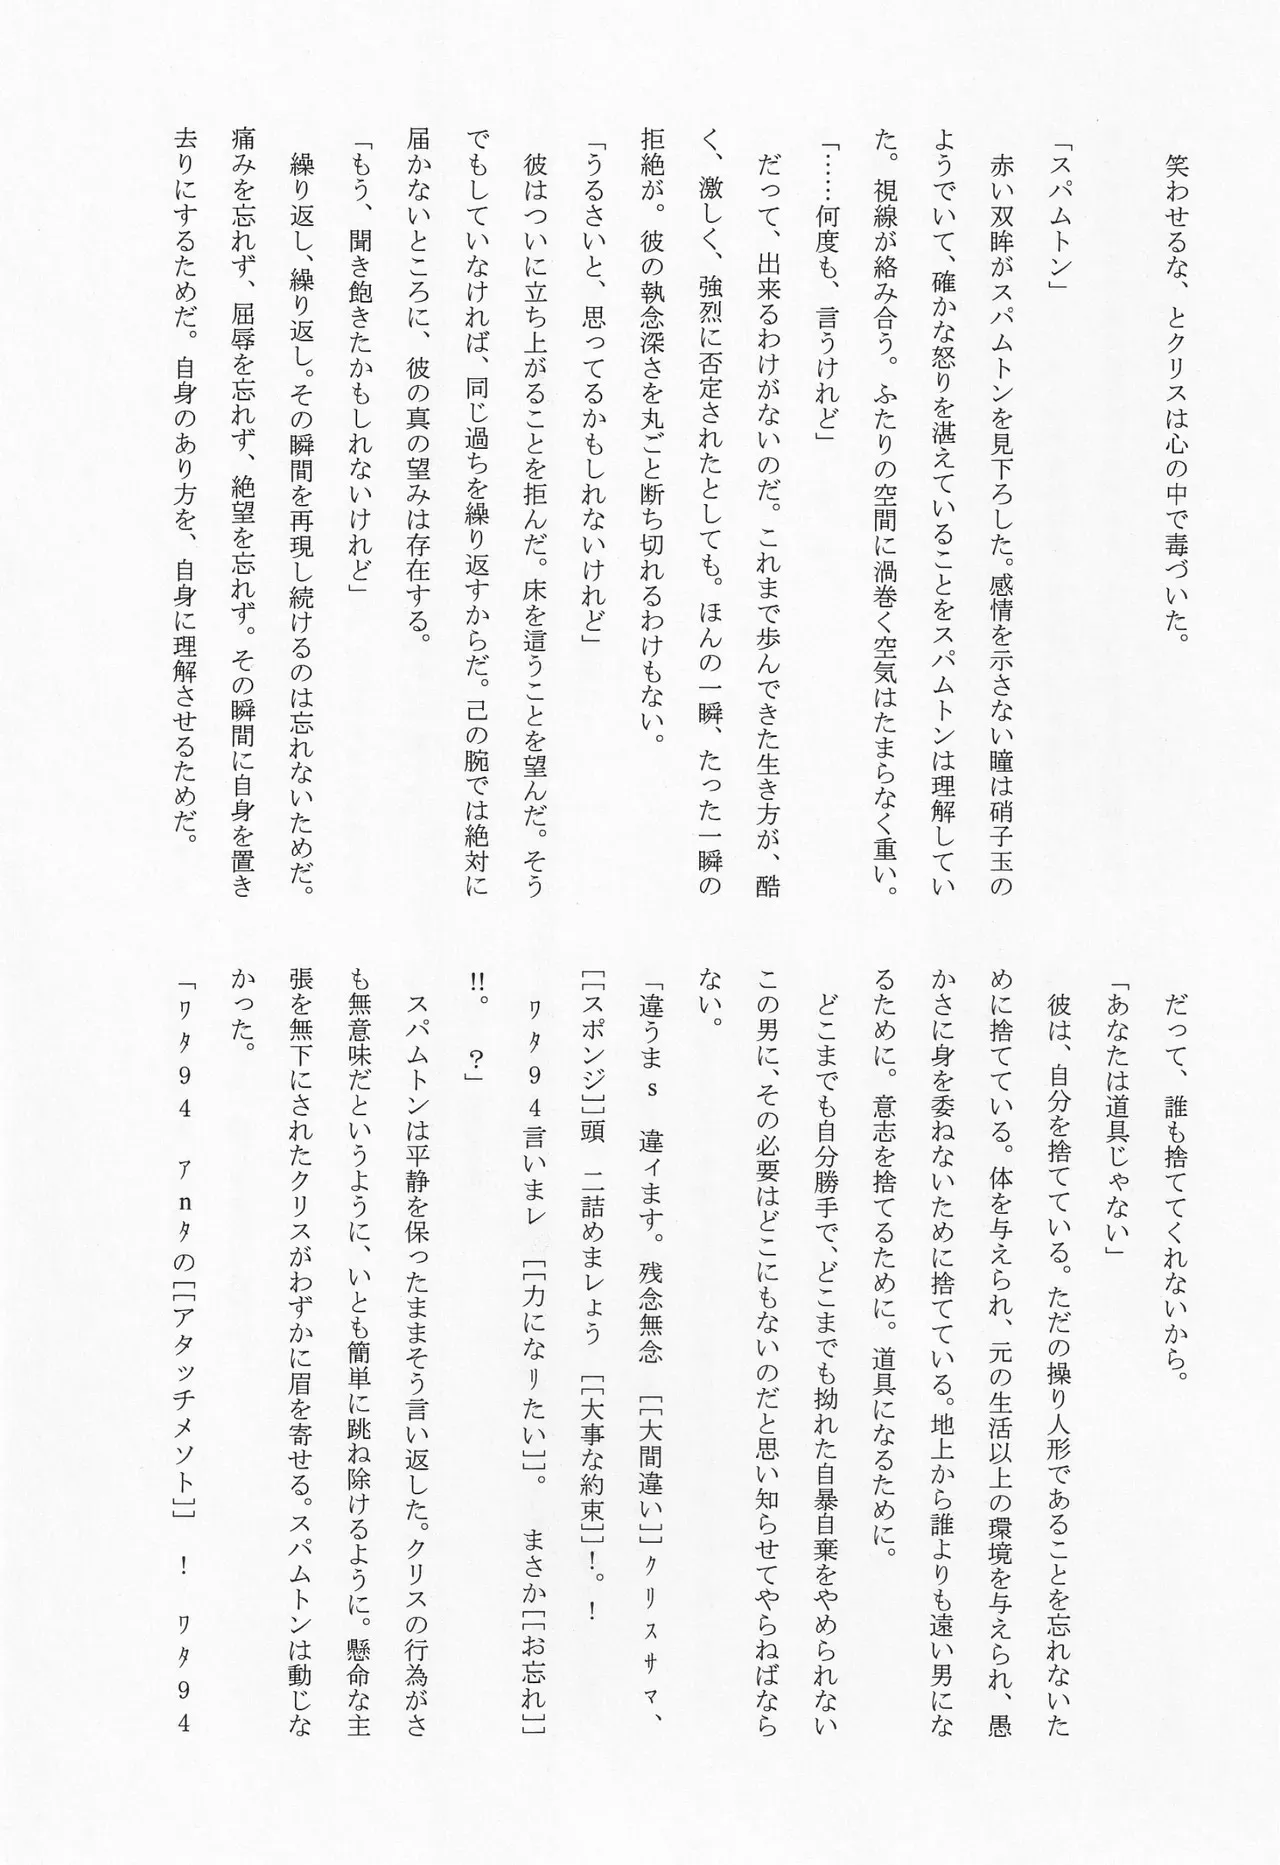 笑わせるな、とクリスは心の中で毒づいた。
「スパムトン」
赤い双眸がスパムトンを見下ろした。感情を示さない瞳は硝子玉の
ようでいて、確かな怒りを湛えていることをスパムトンは理解してい
た。視線が絡み合う。ふたりの空間に渦巻く空気はたまらなく重い。
「……何度も、言うけれど」
だって、出来るわけがないのだ。これまで歩んできた生き方が、酷
く、激しく、強烈に否定されたとしても。ほんの一瞬、たった一瞬の
拒絶が。彼の執念深さを丸ごと断ち切れるわけもない。
「うるさいと、思ってるかもしれないけれど」
彼はついに立ち上がることを拒んだ。床を這うことを望んだ。そう
でもしていなければ、同じ過ちを繰り返すからだ。己の腕では絶対に
届かないところに、彼の真の望みは存在する。
「もう、聞き飽きたかもしれないけれど」
繰り返し、繰り返し。その瞬間を再現し続けるのは忘れないためだ。
痛みを忘れず、屈辱を忘れず、絶望を忘れず。その瞬間に自身を置き
去りにするためだ。自身のあり方を、自身に理解させるためだ。
だって、誰も捨ててくれないから。
「あなたは道具じゃない」
彼は、自分を捨てている。ただの操り人形であることを忘れないた
めに捨てている。体を与えられ、元の生活以上の環境を与えられ、愚
かさに身を委ねないために捨てている。地上から誰よりも遠い男にな
るために。意志を捨てるために。道具になるために。
どこまでも自分勝手で、どこまでも拗れた自暴自棄をやめられない
この男に、その必要はどこにもないのだと思い知らせてやらねばなら
ない。
「違うまs　違ィます。残念無念　[[大間違い]]ｸﾘｽｻﾏ、
[[スポンジ]]頭　二詰めまレょう　[[大事な約束]]！。！
ﾜﾀ94言いまレ　[[力になﾘたい]]。　まさか[[お忘れ]]
!!。　?」
スパムトンは平静を保ったままそう言い返した。クリスの行為がさ
も無意味だというように、いとも簡単に跳ね除けるように。懸命な主
張を無下にされたクリスがわずかに眉を寄せる。スパムトンは動じな
かった。
「ﾜﾀ94　ｱnﾀの[[アタッチメソト]]　！　ﾜﾀ94